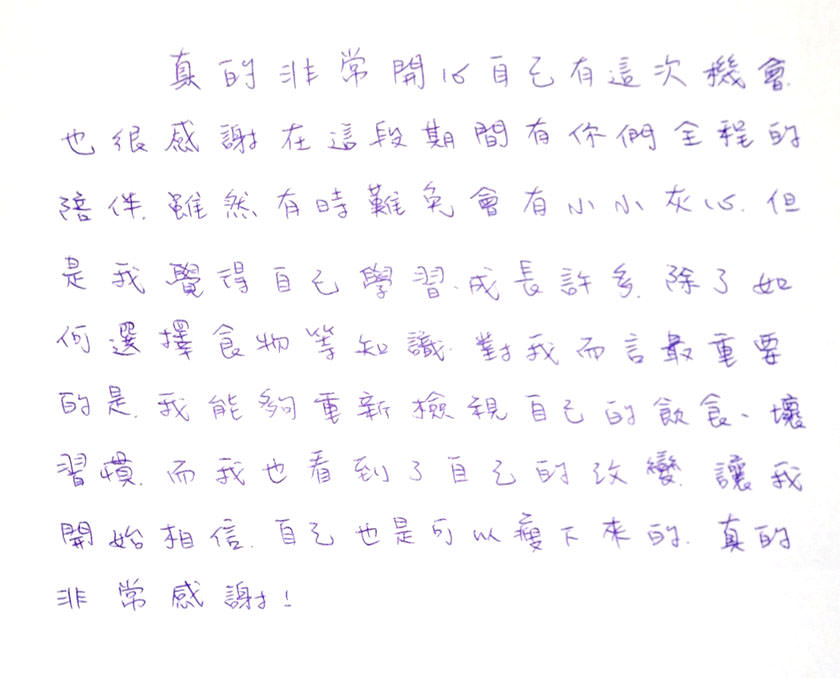 真的非常開心自己有這次機會.
也很感謝在這段期間有你們全程的
陪伴.雖然有時難免會有小小灰心.但
是我覺得自己學習.成長許多.除了如
何選擇食物等知識.對我而言最重要
的是.我能夠重新檢視自己的飲食、壞
習慣.而我也看到了自己的改變.讓我
開始相信.自己也是可以瘦下來的.真的
非常感謝!